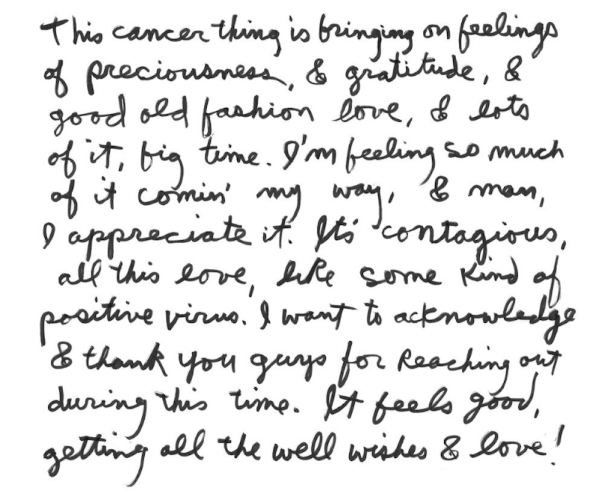 This cancer thing is bringing on feelings
of preciousness, & gratitude, &
good old fashion love, & lots
of it, big time. I'm feeling so much
of it comin' my way, & man,
I appreciate it. It's contagious,
all this love, like some kind of
positive virus. I want to acknowledge
& thank you guys for reaching out
during this time. It feels good,
getting all the well wishes & love!